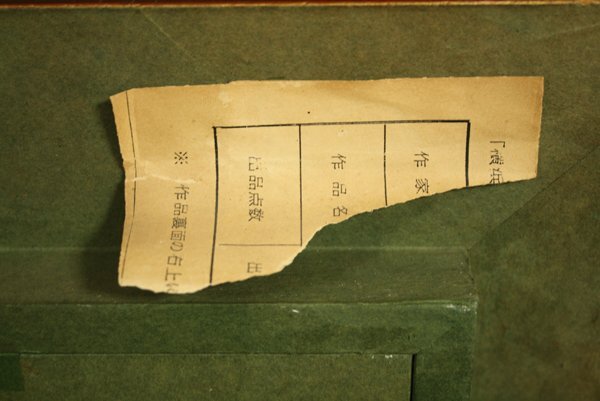 「横浜
作家
作品名
出品点数
出
※ 作品裏面の右上に